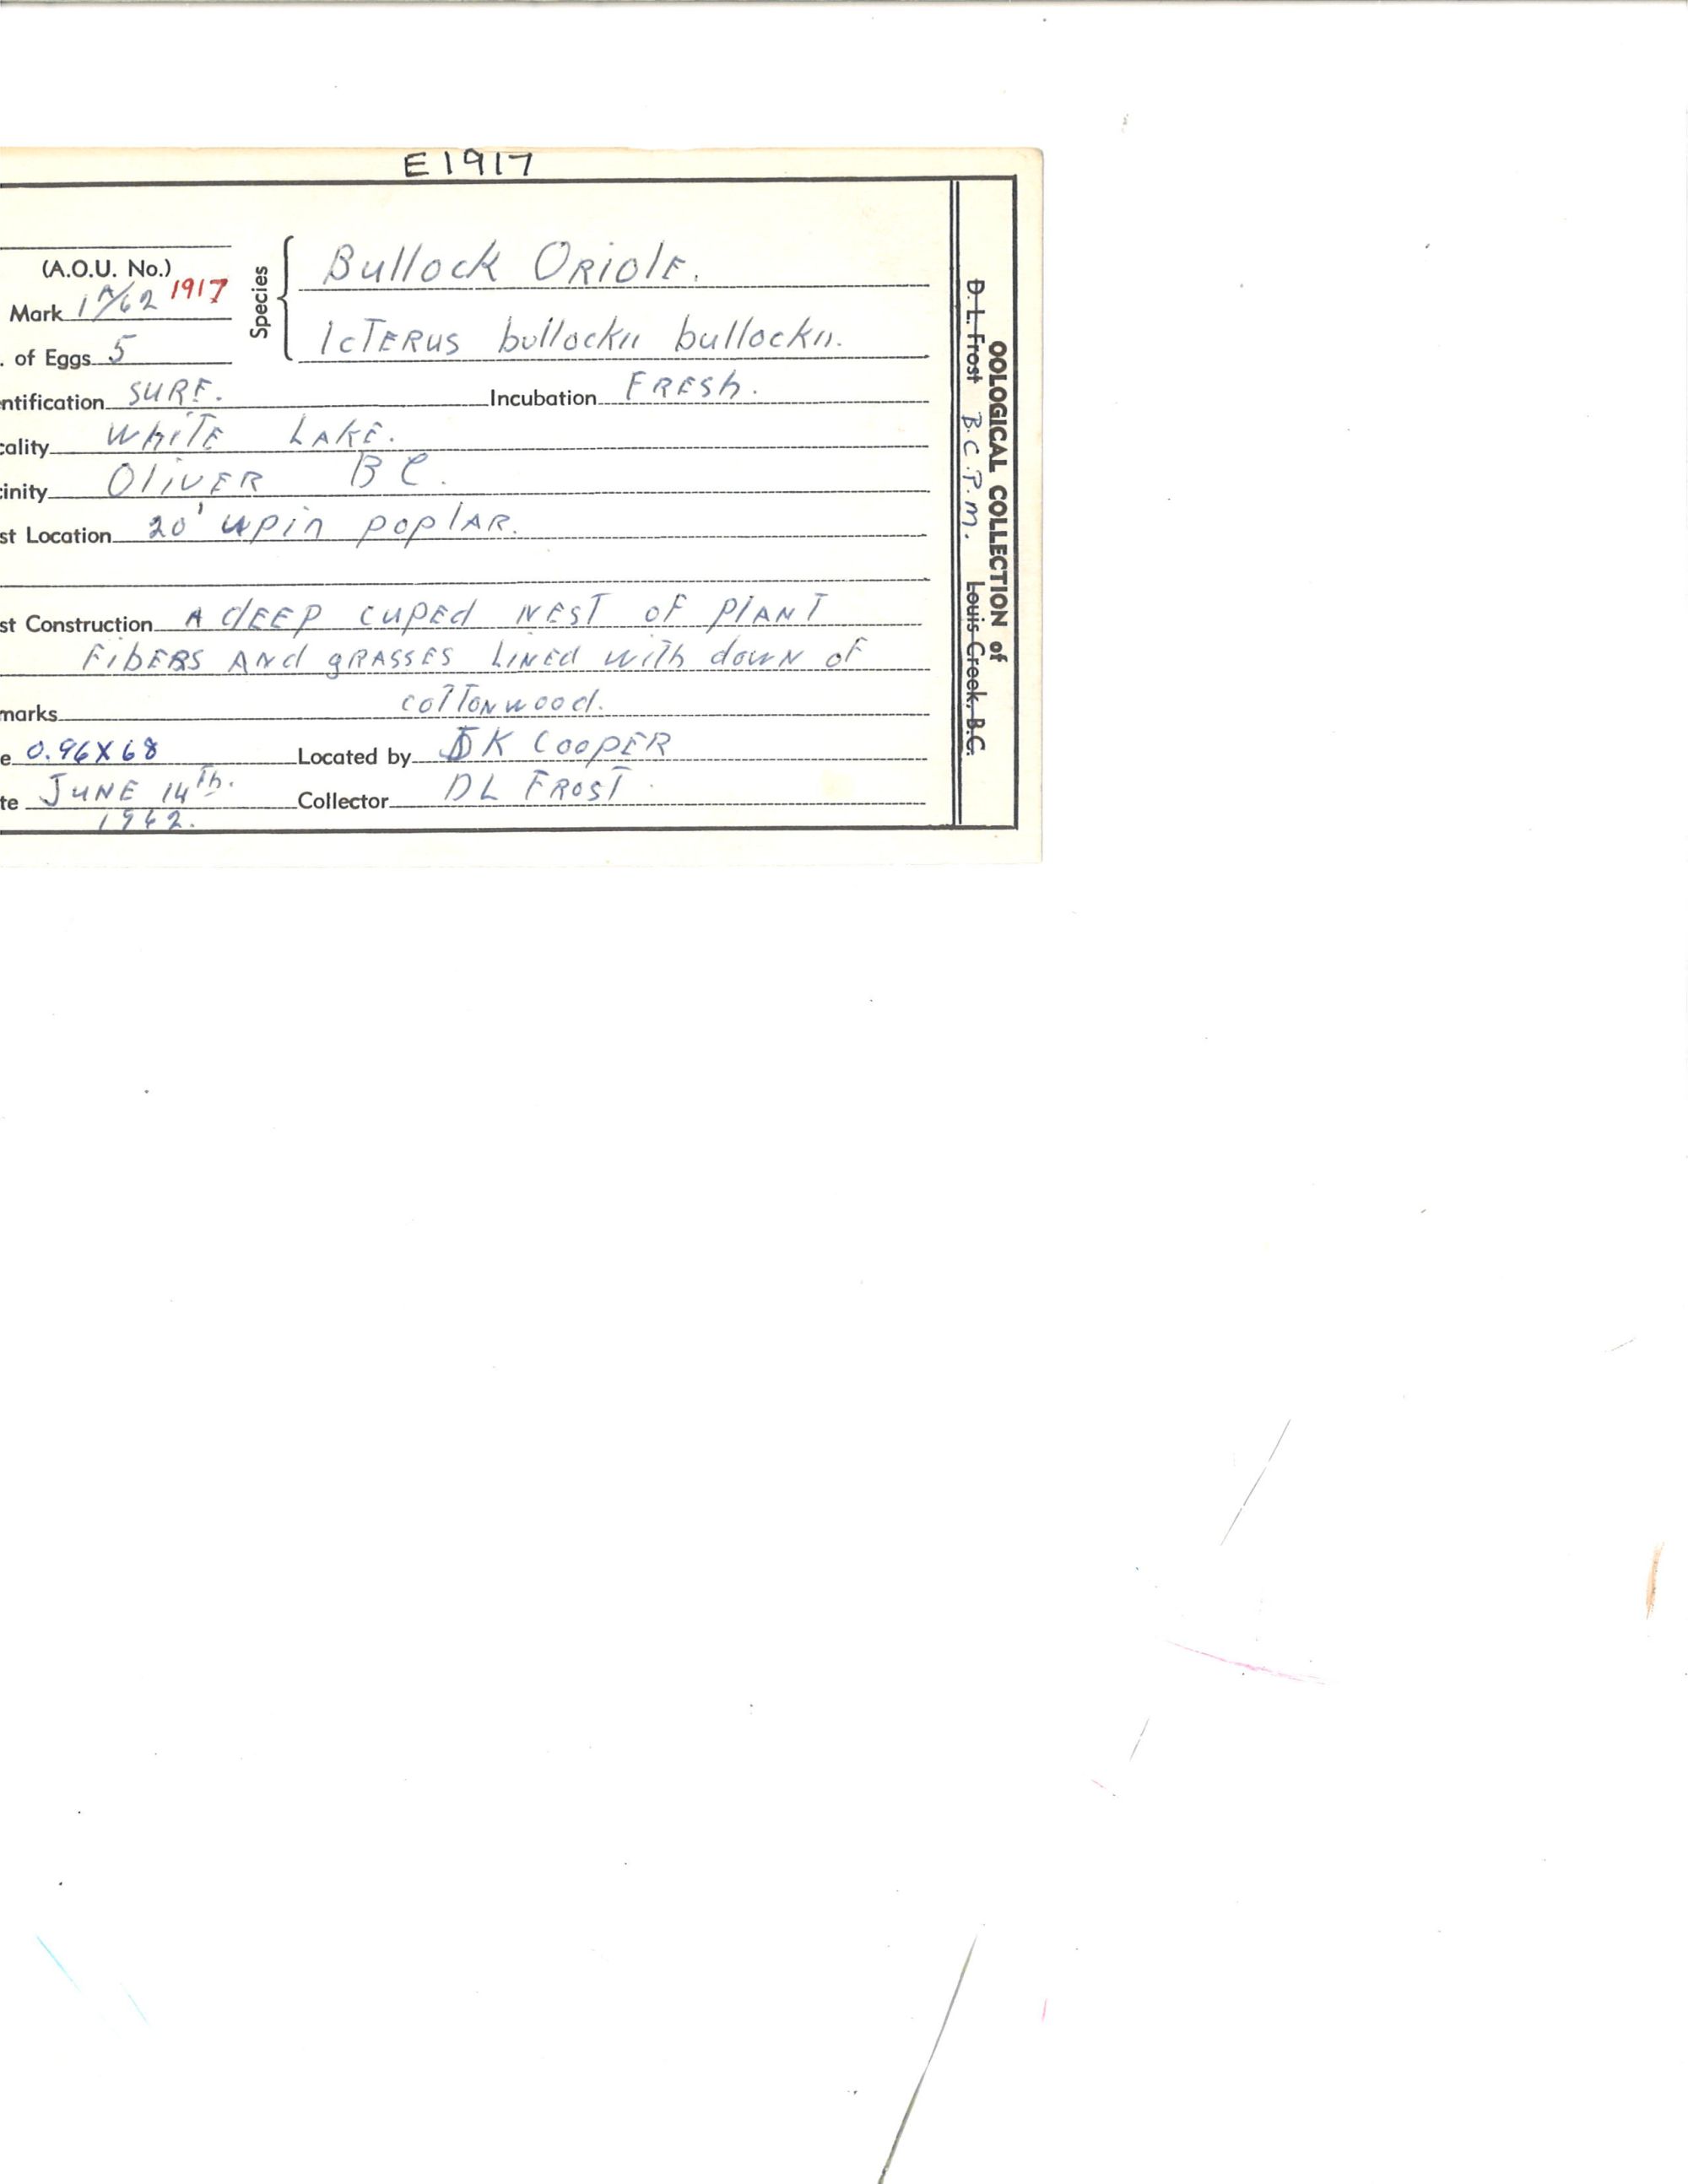 E1917
(A.O.U. No.)
Mark 1A/62 1917
Species
Bullock Oriole.
Icterus bullockii bullockii.
. of Eggs 5
ntification SURE. Incubation FRESh.
cality WhiTE LAKE.
cinity OliVER BC.
st Location 20' up in poplAR.
st Construction A dEEP cuped NEST oF PlANT
FibERS ANd gRASSES LiNEd wiTh dowN oF
marks coTToNwood.
e 0.96X68 Located by DK CooPER
te JUNE 14Th. Collector DL FROST
1962.
OOLOGICAL COLLECTION of
D. L. Frost B.C.P.M. Louis Creek, B.C.